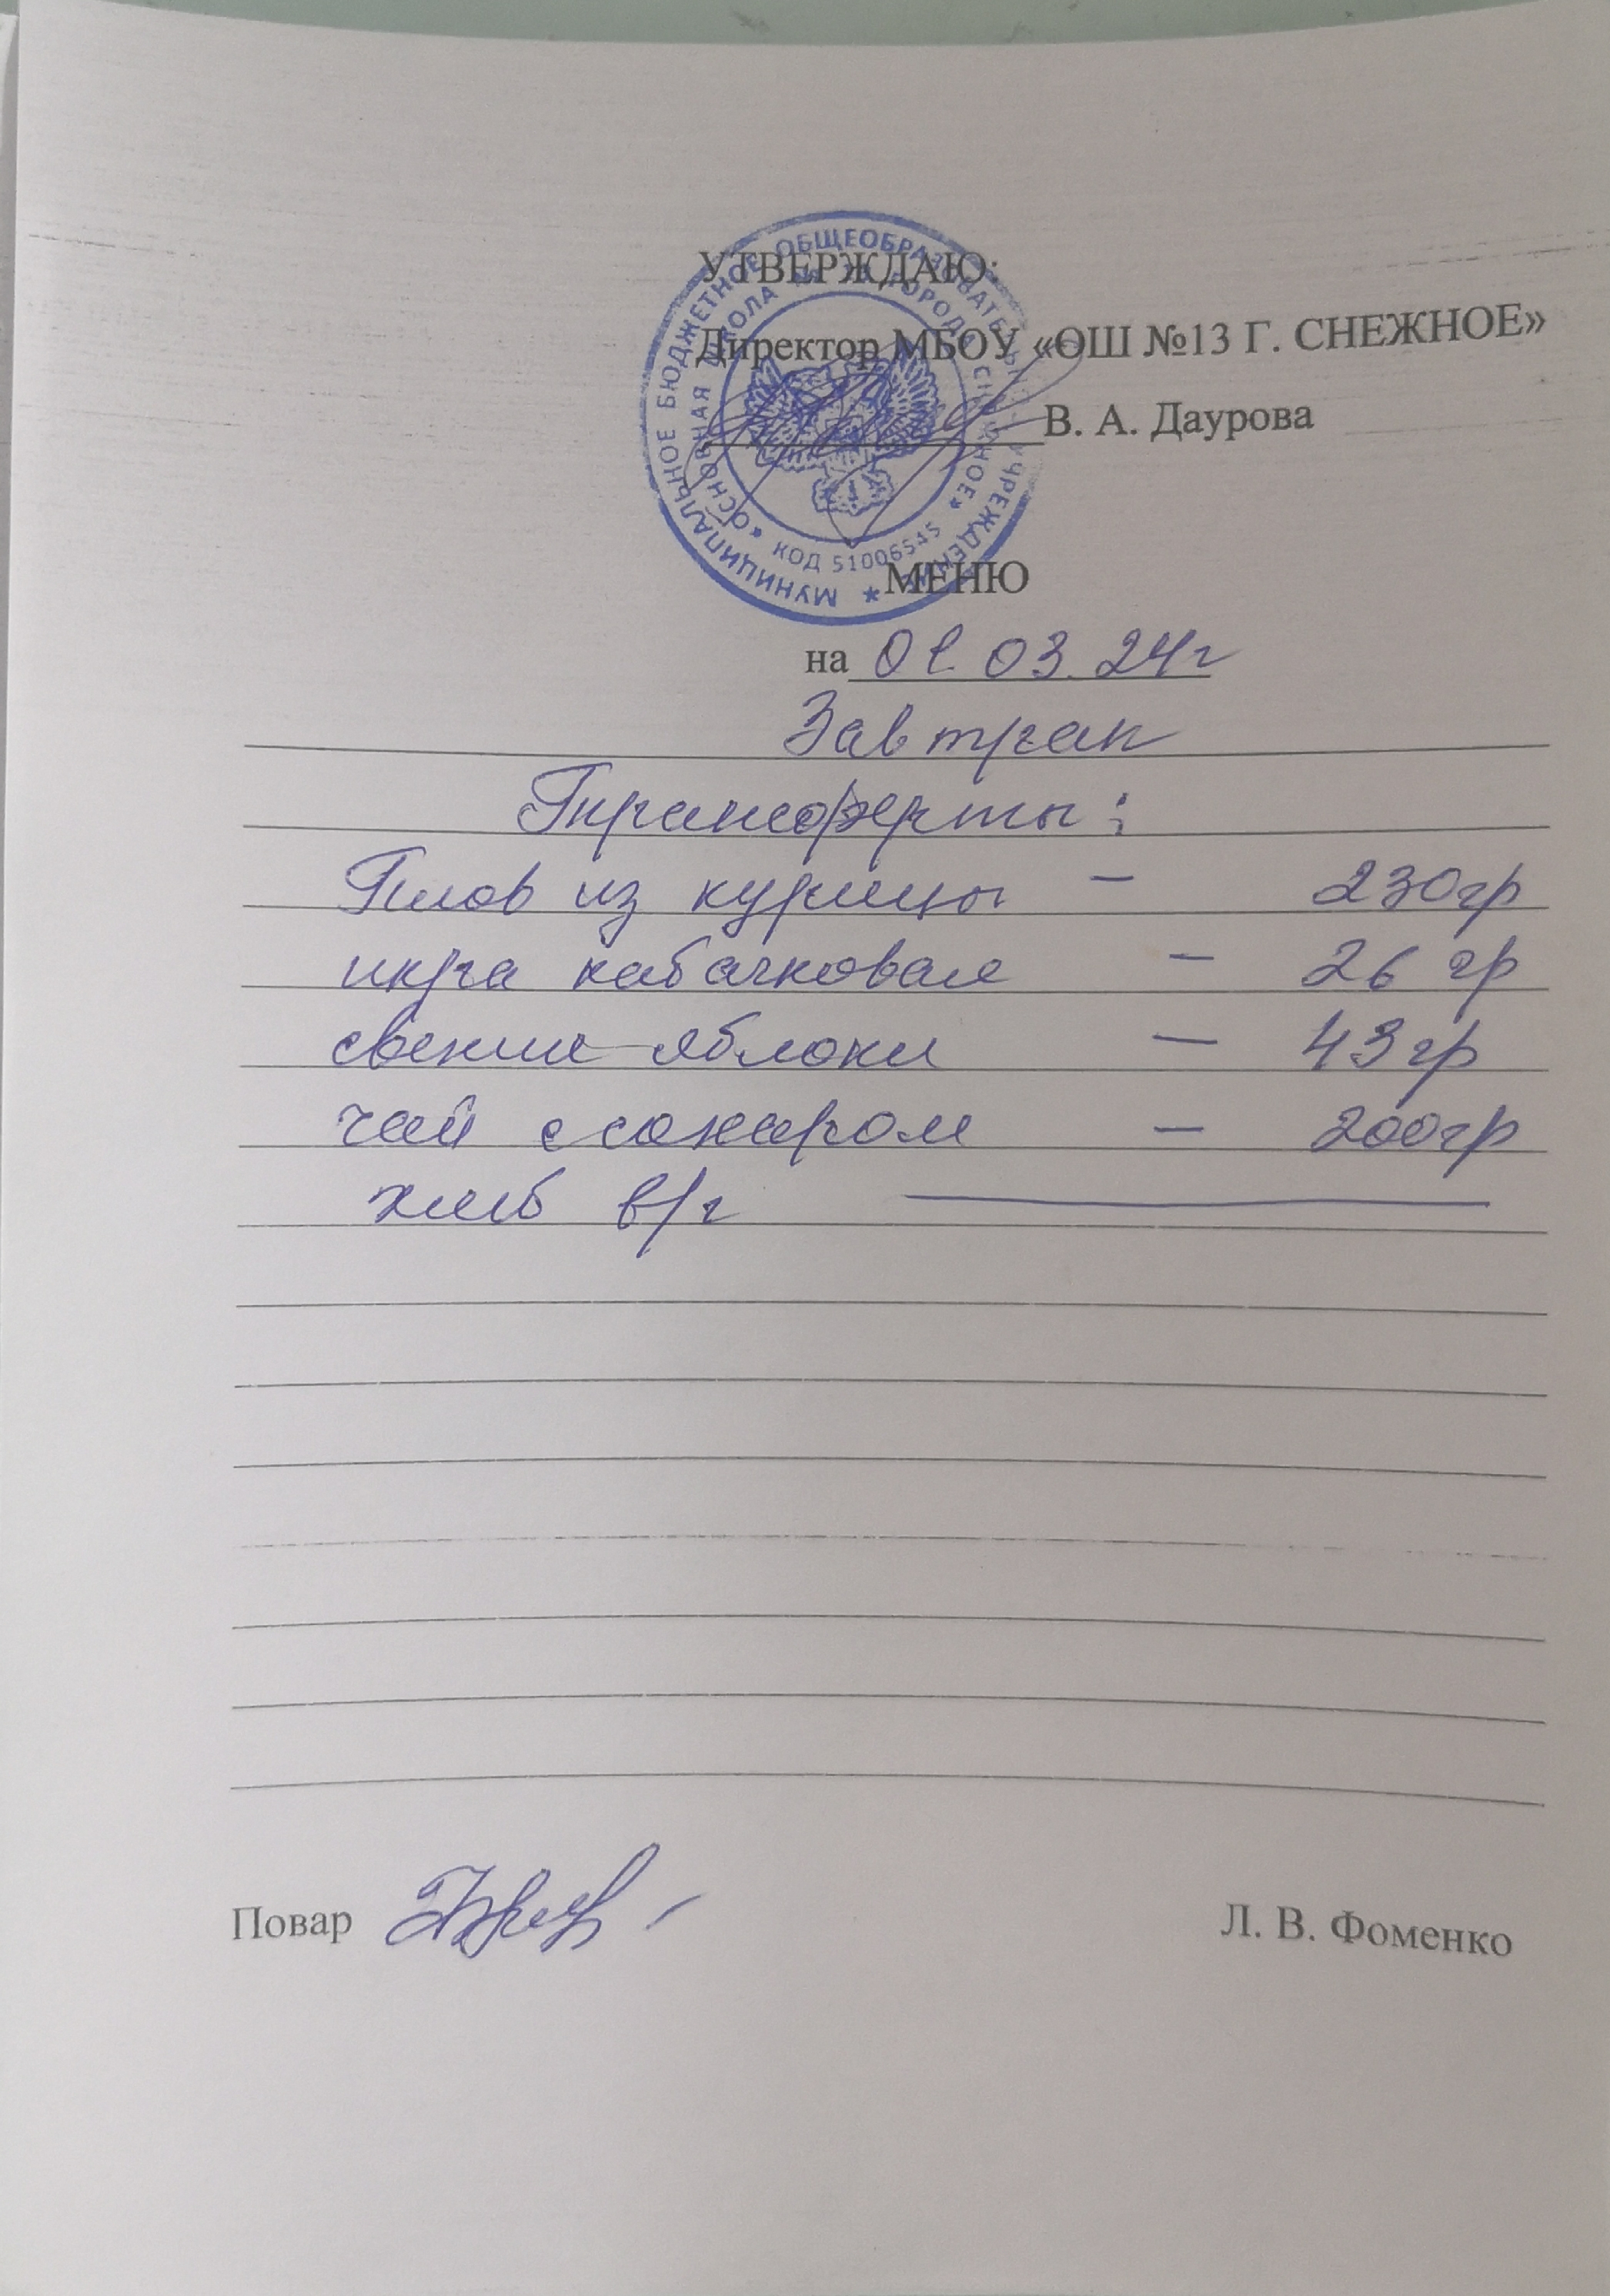 УТВЕРЖДАЮ:
Директор МБОУ «ОШ №13 Г. СНЕЖНОЕ»
В. А. Даурова
МУНИЦИПАЛЬНОЕ БЮДЖЕТНОЕ ОБЩЕОБРАЗОВАТЕЛЬНОЕ УЧРЕЖДЕНИЕ
«ОСНОВНАЯ ШКОЛА № 13 ГОРОДА СНЕЖНОЕ»
КОД 51006545
МЕНЮ
на 01.03.24г
Завтрак
Трансферты:
Плов из курицы - 230гр
икра кабачковая - 26 гр
свежие яблоки - 43гр
чай с сахаром - 200гр
хлеб в/г
Повар Л. В. Фоменко